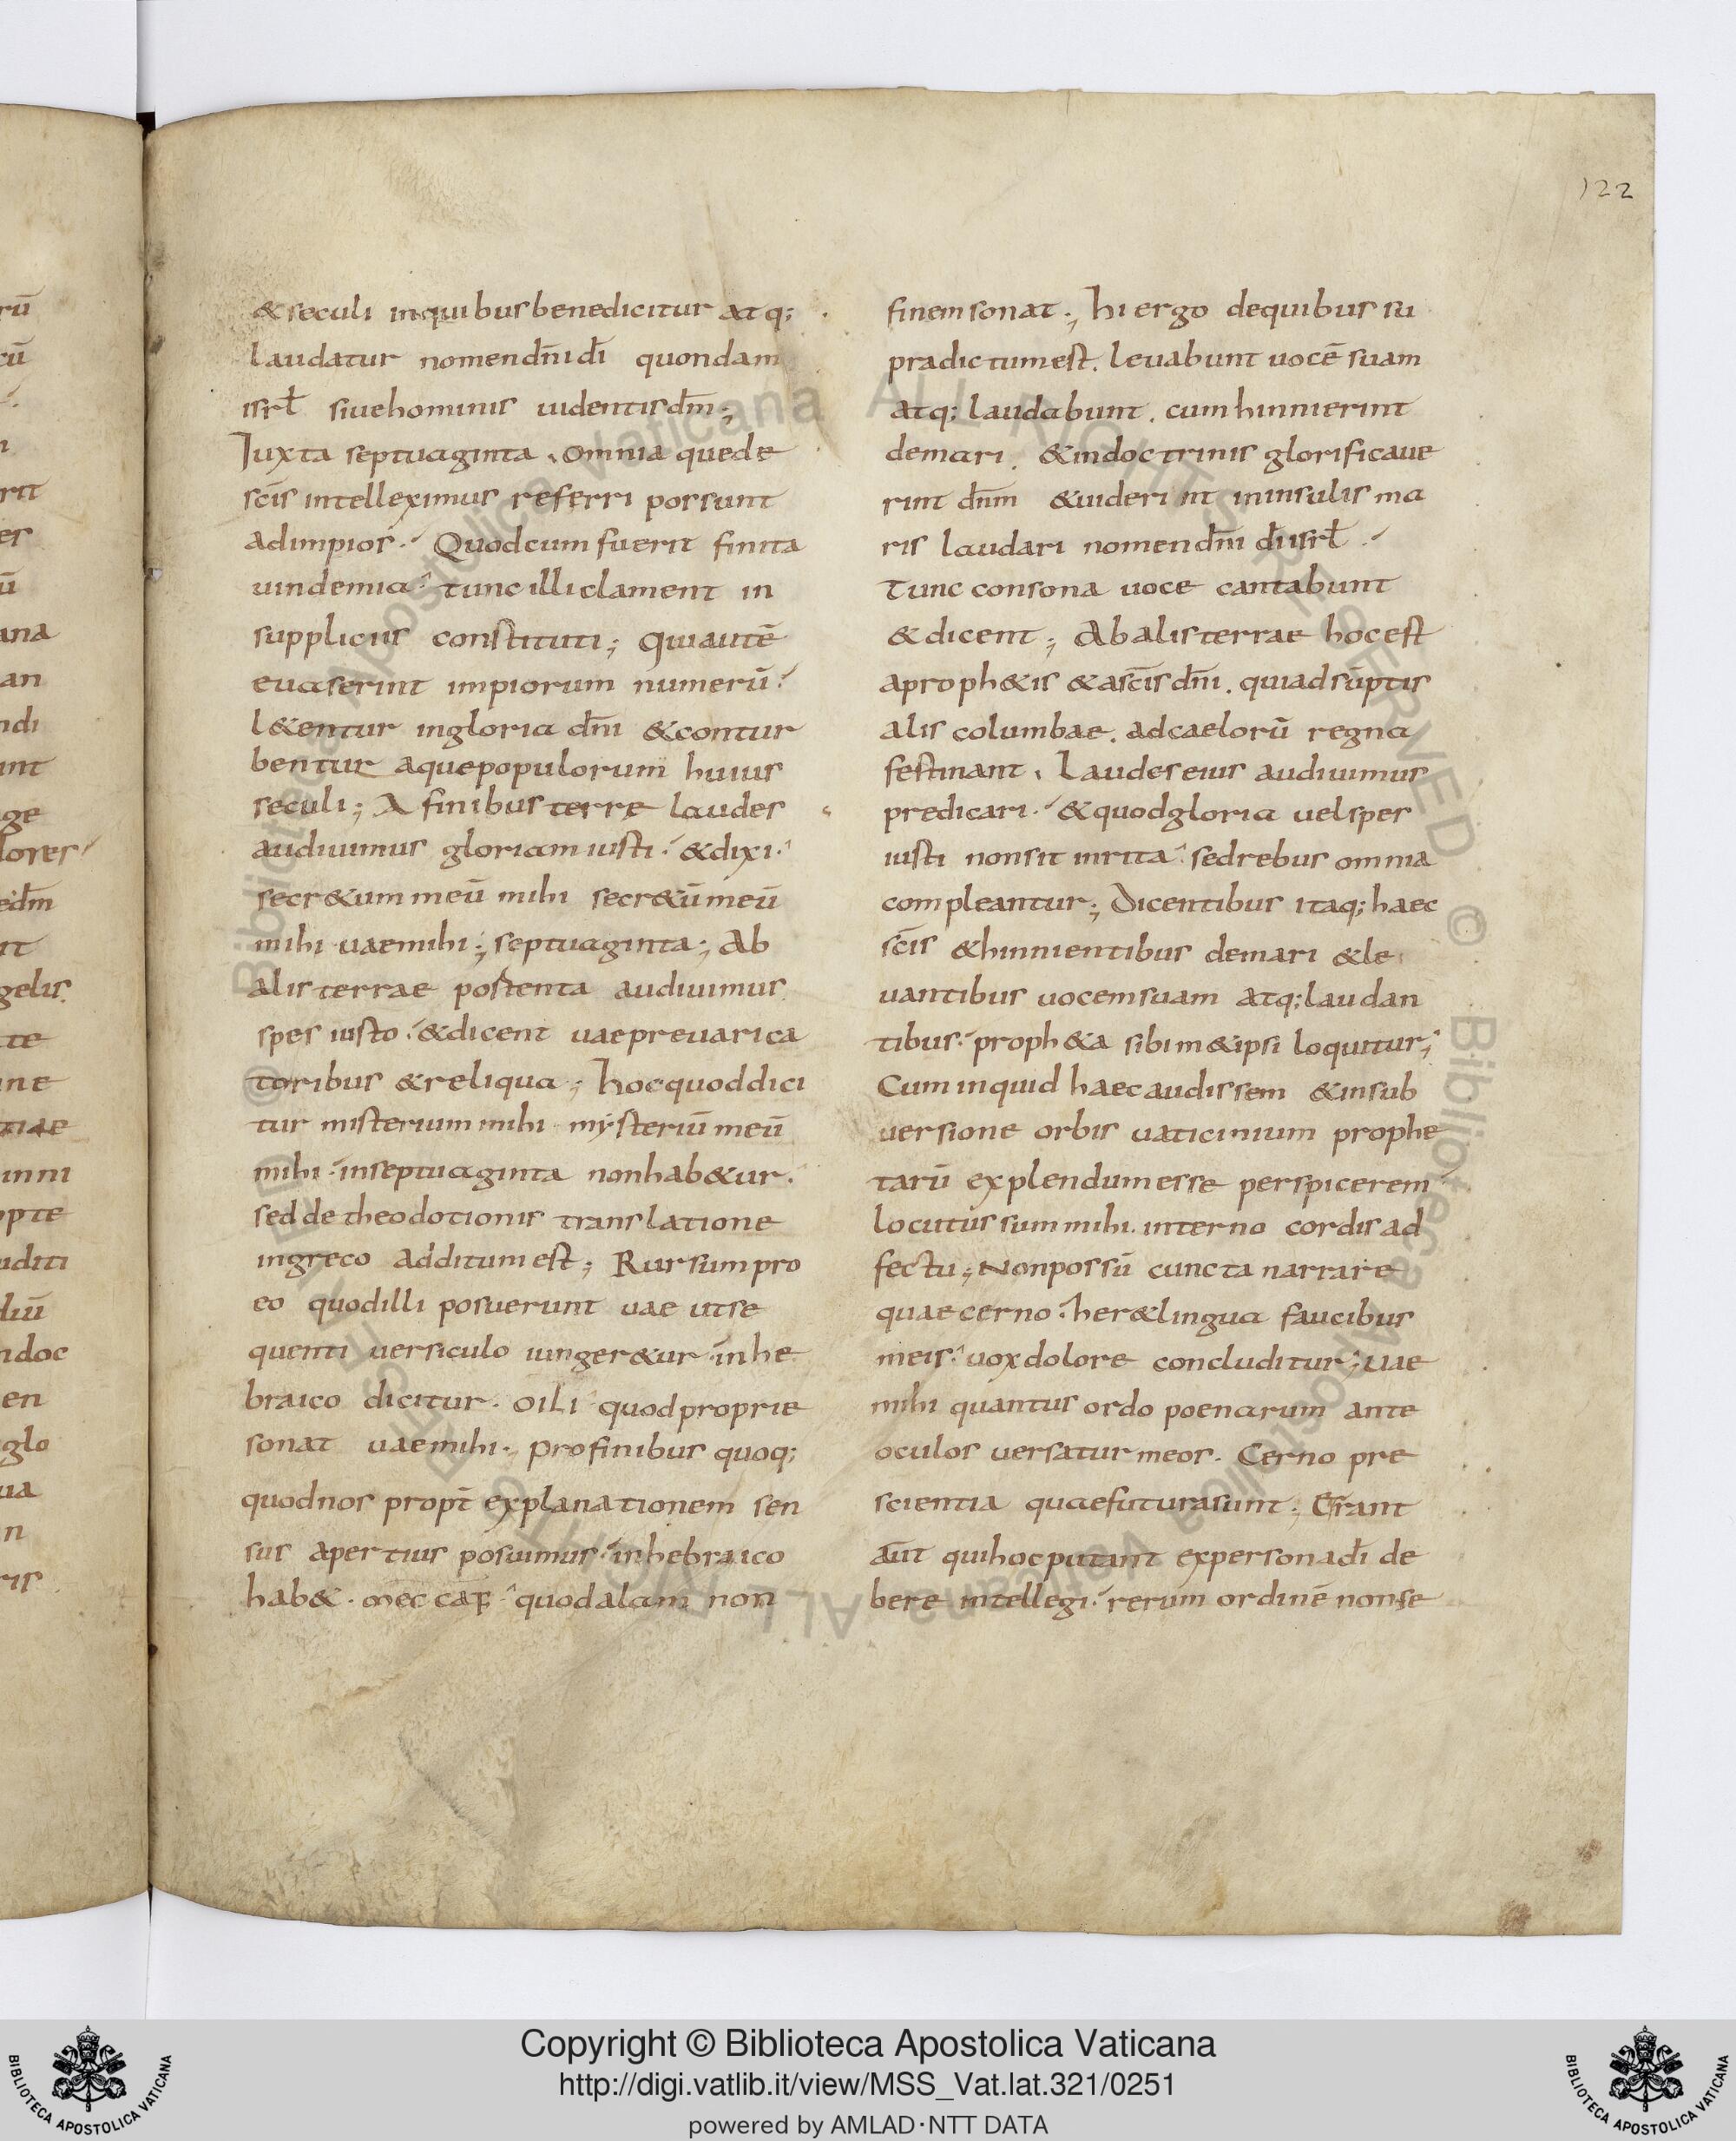 122
& seculi inquibus benedicitur atq;
laudatur nomen dñi dī quondam
isrł siue hominis uidentis dm̄;
Juxta septuaginta. omnia quede
sc̄is intelleximus referri possunt
adimpios. Quodcum fuerit finita
uindemia tunc illi clament in
suppliciis constituti; Quiautē
euaserint impiorum numerū.
l&entur ingloria dn̄i & contur
bentur aquepopulorum huius
seculi; A finibus terrę laudes
audiuimus gloriam iusti. & dixi.
secr&um meū mihi secr&ū meū
mihi uaemihi; septuaginta; Ab
alis terrae postenta audiuimus
spes iusto. & dicent uaepreuarica
toribus & reliqua; hocquoddici
tur misterium mihi mysteriū meū
mihi. inseptuaginta nonhab&ur.
sed de theodotionis translatione
ingreco additum est; Rursumpro
eo quodilli posuerunt uae utse
quenti uersiculo iunger&ur inhe
braico dicitur. OILI quodproprie
sonat uaemihi. profinibus quoq;
quodnos propt̄ explanationem sen
sus apertius posuimus. inhebraico
hab&. meccaf. quodalam non
finemsonat; hi ergo dequibus su
pradictumest. leuabunt uocē suam
atq; laudabunt. cumhinnierint
demari. & indoctrinis glorificaue
rint dn̄m & uiderint ininsulis ma
ris laudari nomen dn̄i dī isrł.
Tunc consona uoce cantabunt
& dicent; Abalisterrae hocest
aproph&is & asc̄is dn̄i. quiadsūptis
alis columbae. adcaelorū regna
festinant. Laudeseius audiuimus
predicari. & quodgloria uelspes
iusti nonsit inrita. sedrebus omnia
compleantur; Dicentibus itaq; haec
sc̄is & hinnientibus demari & le
uantibus uocemsuam atq; laudan
tibus. proph&a sibim&ipsi loquitur;
Cum inquid haec audissem & insub
uersione orbis uaticinium prophe
tarū explendumesse perspicerem
locutus sum mihi. interno cordis ad
fectu; Nonpossū cuncta narrare
quae cerno. her&lingua faucibus
meis. uox dolore concluditur; Uae
mihi quantus ordo poenarum ante
oculos uersatur meos. Cerno pre
scientia quaefuturasunt; Erant
aūt quihocputant expersonadī de
bere intellegi. rerum ordinē nonse
Copyright © Biblioteca Apostolica Vaticana
http://digi.vatlib.it/view/MSS_Vat.lat.321/0251
powered by AMLAD·NTT DATA
BIBLIOTECA APOSTOLICA VATICANA
BIBLIOTECA APOSTOLICA VATICANA